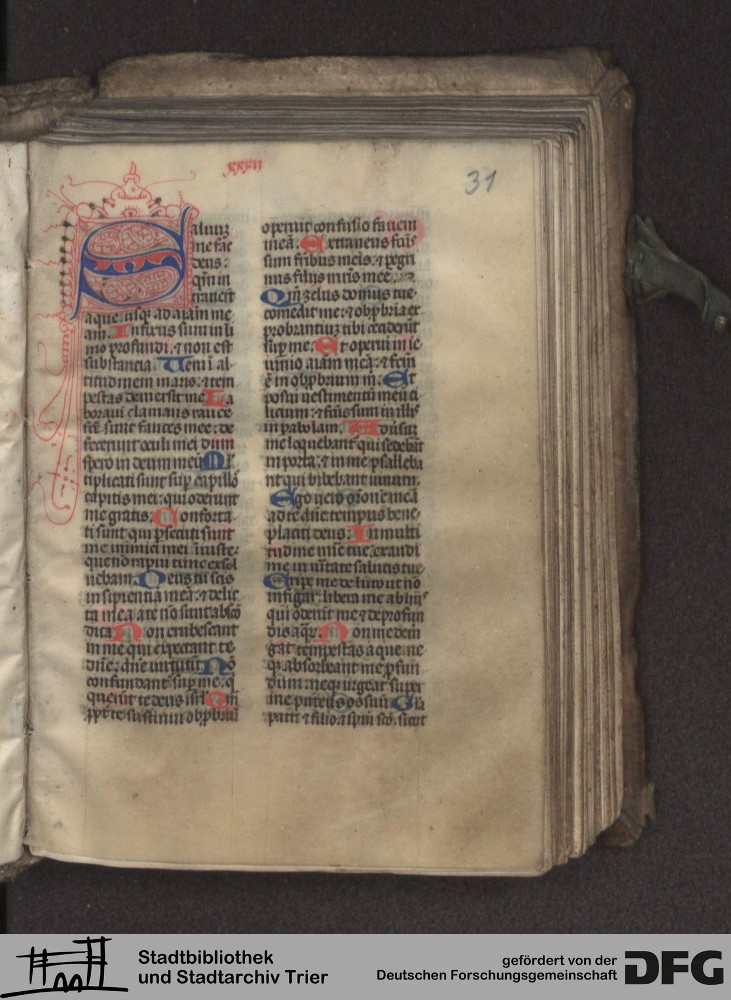 xxxii
31
Saluum
me fac
deus:
qm̄ in
trauerūt
aque usq; ad aīam me
am. Infixus sum in li
mo profundi: ⁊ non est
substantia. Ueni ī al
titudinem maris: ⁊ tem
pestas demersit me La
boraui clamans rauce
fcē sunt fauces mee: de
fecerunt oculi mei dum
spero in deum meū Ml̄
tiplicati sunt sup̄ capillos
capitis mei: qui oderunt
me gratis. Conforta
ti sunt qui psecuti sunt
me inimici mei iniuste:
que nō rapui tunc exsol
uebam. Deus tu scis
insipientiā meā: ⁊ delic
ta mea a te nō sunt absco
dita Non erubescant
in me qui expectant te
dn̄e: dn̄e uirtutū Nō
confundant̄ sup me: q̄
querūt te deus isrl̄ Qm̄
ꝓpt̄ te sustinui obꝓbriū
operuit confusio faciem
meā. Extraneus fcūs
sum frībus meis: ⁊ pegri
nus filijs mr̄is mee.
Qm̄ zelus domus tue
comedit me: ⁊ obꝓbria ex
probrantiū tibi cecidert̄
sup̄ me. Et operui in ie
iunio aīam meā: ⁊ fcm̄
ē in obꝓbrium m̄. Et
posui uestimentū meū ci
licium: ⁊ fcūs sum illis
in pabolam. Aduersū
me loquebant̄ qui sedebāt
in porta: ⁊ in me psalleba
nt qui bibebant uinum.
Ego uero orōnē meā
ad te dn̄e: tempus bene
placiti deus. In multi
tudine mīe tue: exaudi
me in ūitate salutis tue
Eripe me de luto ut nō
infigar: libera me ab hijs
qui oderūt me ⁊ de profun
dis aq̄r. Non me dem
gat tempestas aque: ne
q; absorbeat me ꝓfun
dum: neq; urgeat super
me puteus os suū Gla
patri ⁊ filio: ⁊ spiri scō. sicut
Stadtbibliothek
und Stadtarchiv Trier
gefördert von der
Deutschen Forschungsgemeinschaft
DFG